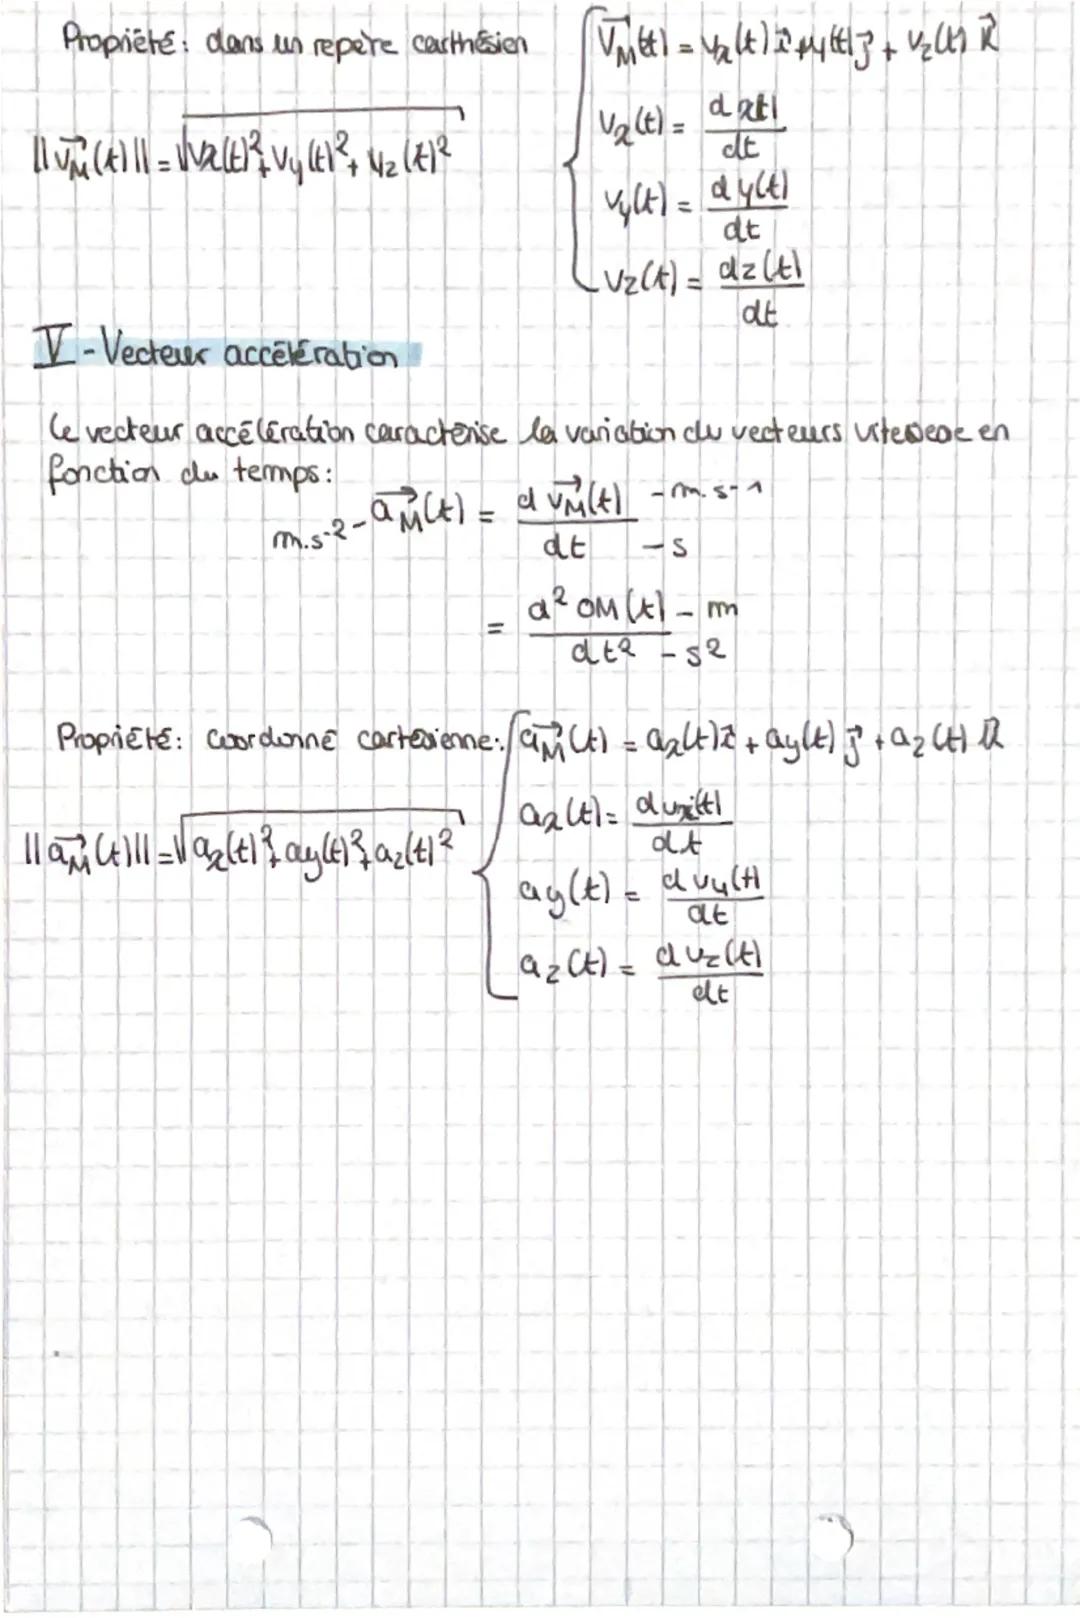 Propriété: dans un repère carthésien
||v⃗M(t)|| = √vx(t)²+vy(t)²+vz(t)²
v⃗M(t) = vx(t)i⃗+vy(t)j⃗ + vz(t) k⃗
vx(t) = dx(t)/dt
vy(t) = dy(t)/dt
vz(t) = dz(t)/dt
V - Vecteur accélération
Le vecteur accélération caractérise la variation du vecteurs vitesse en
fonction du temps:
m.s-2 - a⃗M(t) = d v⃗M(t)/dt - m.s-1 - s
= d² OM(t)/dt² - m - s²
Propriété: coordonné cartésienne:
a⃗M(t) = ax(t)i⃗ + ay(t) j⃗ + az(t) k⃗
||a⃗M(t)|| = √ax(t)²+ay(t)²+az(t)²
ax(t) = dvx(t)/dt
ay(t) = dvy(t)/dt
az(t) = dvz(t)/dt